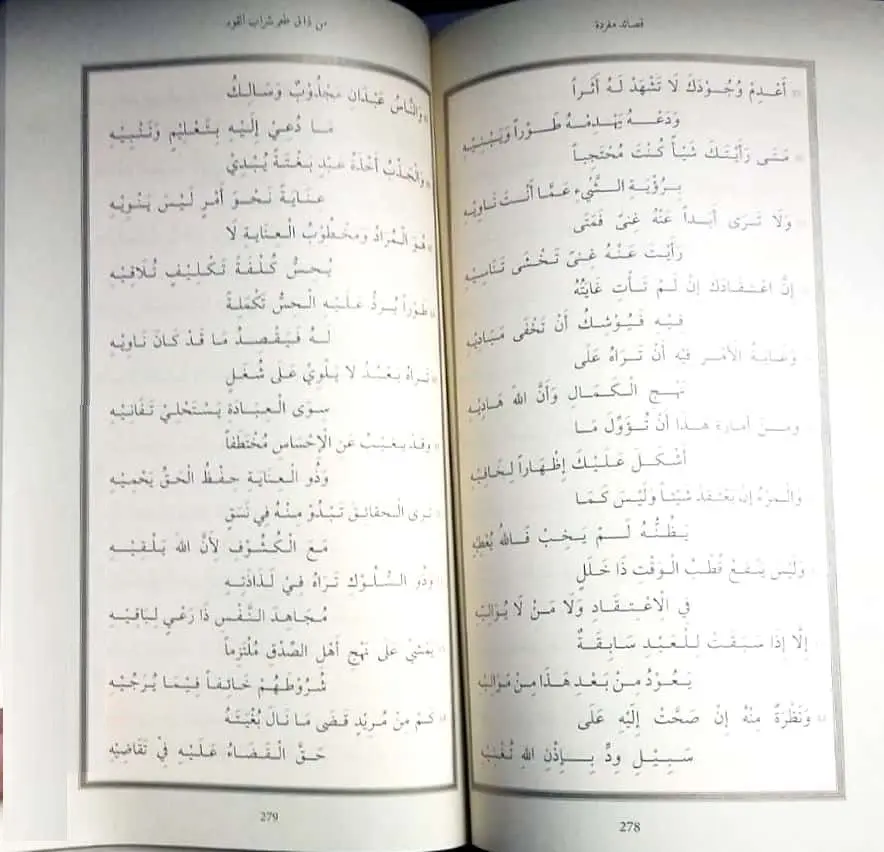 قصائد مفردة
أَعْدِمْ وُجُوْدَكَ لَا تَشْهَدْ لَهُ أَثَراً
وَدَعْهُ يَهْدِمْهُ طَوْراً وَيَبْنِيْهِ
مَتَى رَأَيْتَكَ شَيْأً كُنْتَ مُحْتَجِباً
بِرُؤْيَةِ الشَّيْءِ عَمَّا أَنْتَ نَاوِيْهِ
وَلَا تَرَى أَبَداً عَنْهُ غِنىً فَمَتَى
رَأَيْتَ عَنْهُ غِنىً تَخْشَى تَنَاسِيْهِ
إِنَّ اعْتِقَادَكَ إِنْ لَمْ تَأْتِ غَايَتُهُ
فِيْهِ فَيُوْشِكُ أَنْ تَخْفَى مَبَادِيْهِ
وَغَايَةُ الْأَمْرِ فِيْهِ أَنْ تَرَاهُ عَلَى
نَهْجِ الْكَمَالِ وَأَنَّ اللهَ هَادِيْهِ
وَمِنْ أَمَارَةِ هَذَا أَنْ تُؤَوِّلَ مَا
أَشْكَلَ عَلَيْكَ إِظْهَاراً لِخَافِيْهِ
وَالْمَرْءُ إِنْ يَعْتَقِدْ شَيْئاً وَلَيْسَ كَمَا
يَظُنُّهُ لَمْ يَخِبْ فَاللهُ يُعْطِيْهِ
وَلَيْسَ يَنْفَعُ قُطْبُ الْوَقْتِ ذَا خَلَلٍ
فِي الْاِعْتِقَادِ وَلَا مَنْ لَا يُوَالِيْهِ
إِلَّا إِذَا سَبَقَتْ لِلْعَبْدِ سَابِقَةٌ
يَعُوْدُ مِنْ بَعْدِ هَذَا مِنْ مَوَالِيْهِ
وَنَظْرَةٌ مِنْهُ إِنْ صَحَّتْ إِلَيْهِ عَلَى
سَبِيْلِ وِدٍّ بِإِذْنِ اللهِ تُغْنِيْهِ
278
من ذاق طعم شراب القوم
وَالنَّاسُ عَبْدَانِ مَجْذُوْبٌ وَسَالِكُ
مَا دُعِيْ إِلَيْهِ بِتَعْلِيْمٍ وَتَنْبِيْهِ
وَالْجَذْبُ أَخْذَةُ عَبْدٍ بَغْتَةً يُبْدِيْ
عِنَايَةً نَحْوَ أَمْرٍ لَيْسَ يَنْوِيْهِ
هُوَ الْمُرَادُ وَمَخْطُوْبُ الْعِنَايَةِ لَا
يُحِسُّ كُلْفَةَ تَكْلِيْفٍ تُلَاقِيْهِ
طَوْراً يُرَدُّ عَلَيْهِ الْحِسُّ تَكْمِلَةً
لَهُ فَيَقْصِدُ مَا قَدْ كَانَ نَاوِيْهِ
تَرَاهُ يَعْبُدُ لَا يَلْوِيْ عَلَى شُغَلٍ
سِوَى الْعِبَادَةِ يَسْتَحْلِيْ تَفَانِيْهِ
وَقَدْ يَغِيْبُ عَنِ الْإِحْسَاسِ مُخْتَطَفاً
وَذُو الْعِنَايَةِ حِفْظُ الْحَقِّ يَحْمِيْهِ
تَرَى الْحَقَائِقَ تَبْدُو مِنْهُ فِي نَسَقٍ
مَعَ الْكُشُوْفِ لِأَنَّ اللهَ يُلْقِيْهِ
وَذُو السُّلُوْكِ تَرَاهُ فِيْ لَذَاذَتِهِ
مُجَاهِدَ النَّفْسِ ذَا رَعْيٍ لِبَاقِيْهِ
يَمْشِيْ عَلَى نَهْجِ أَهْلِ الصِّدْقِ مُلْتَزِماً
شُرُوْطَهُمْ خَائِفاً فِيْمَا يُرَجِّيْهِ
كَمْ مِنْ مُرِيْدٍ قَضَى مَا نَالَ بُغْيَتَهُ
حَقَّ الْقَضَاءُ عَلَيْهِ فِيْ تَقَاضِيْهِ
279